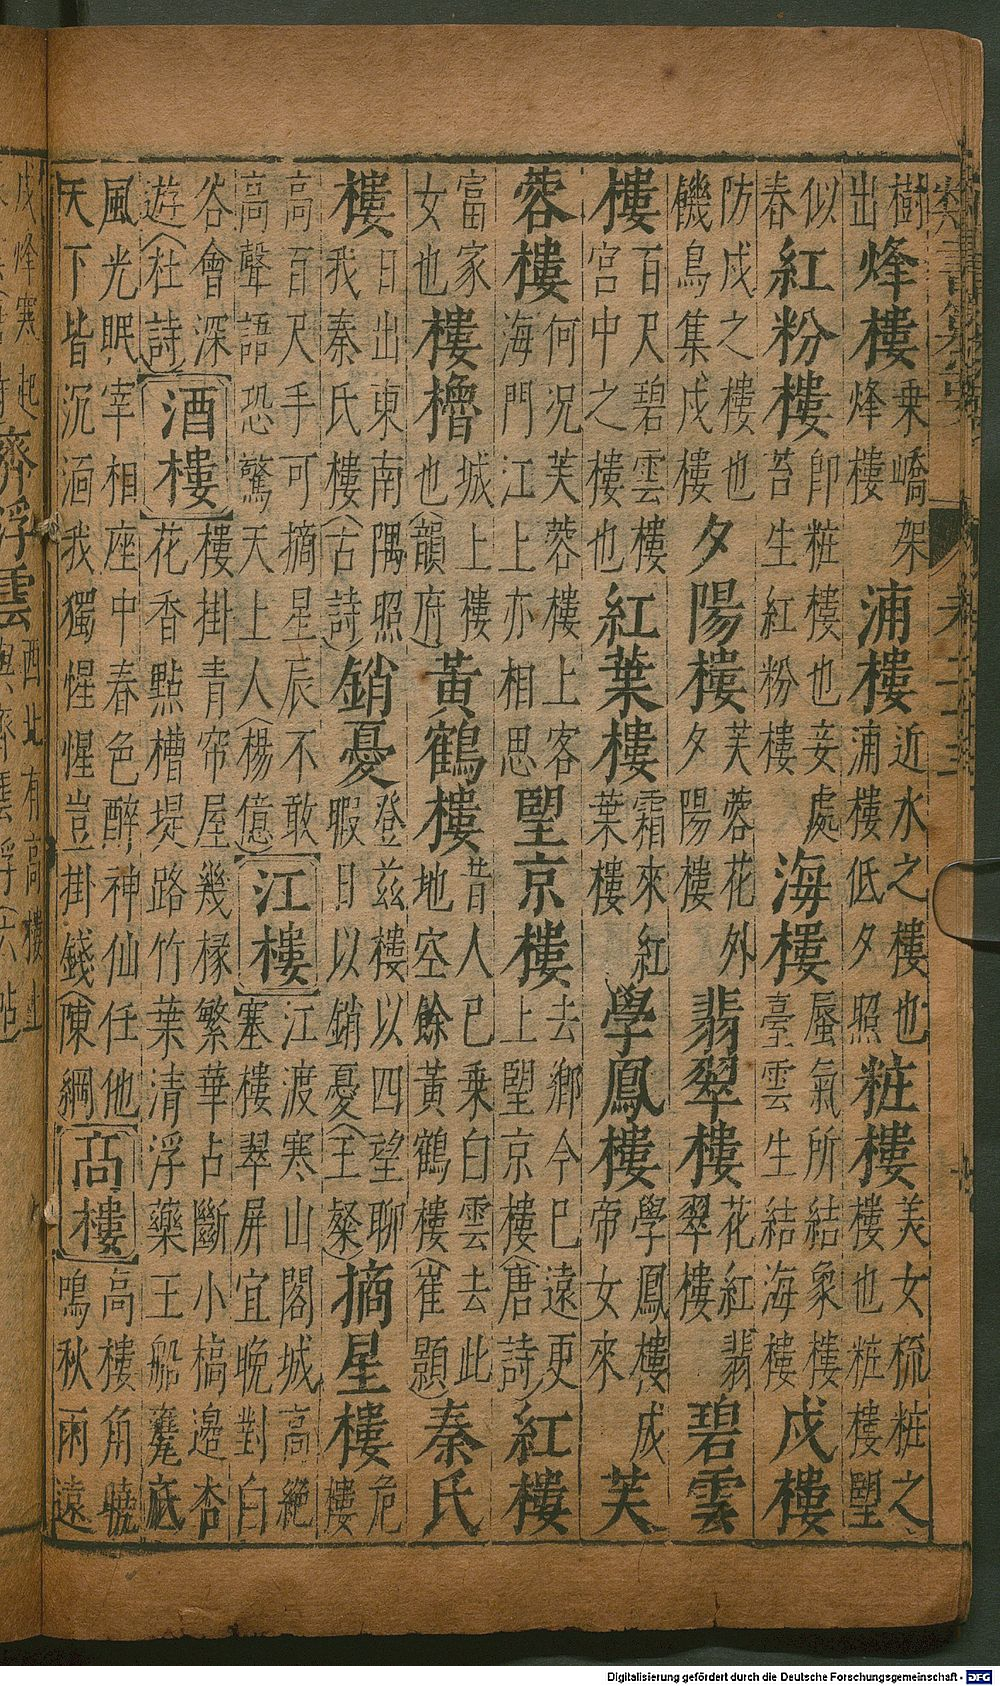 樹出烽樓乗嶠架烽樓浦樓近水之樓也浦樓低夕照粧樓美女梳粧之樓也粧樓朢
似春紅粉樓即粧樓也妾處苔生紅粉樓海樓蜃氣所結象樓臺雲生結海樓戍樓
防戍之樓也饑鳥集戍樓夕陽樓芙蓉花外夕陽樓翡翠樓花紅翡翠樓碧雲
樓百尺碧雲樓宮中之樓也紅葉樓霜來紅葉樓學鳳樓學鳳樓成帝女來芙
蓉樓何況芙蓉樓上客海門江上亦相思朢京樓去鄉今已遠更上朢京樓(唐詩)紅樓
富家女也樓櫓城上樓也(韻府)黃鶴樓昔人已乗白雲去此地空餘黃鶴樓(崔顥)秦氏
樓日出東南隅照我秦氏樓(古詩)銷憂登茲樓以四望聊暇日以銷憂(王粲)摘星樓危樓
高百尺手可摘星辰不敢高聲語恐驚天上人(楊億)江樓江渡寒山閣城高絶塞樓翠屏宜晚對白
谷會深遊(杜詩)酒樓樓掛青帘屋幾椽繁華占斷小橋邉杏花香點槽堤路竹葉清浮藥王船甕底
風光眠宰相座中春色醉神仙任他天下皆沉湎我獨惺惺豈掛錢(陳綱)高樓高樓角曉鳴秋雨遠
戍烽寒起齊浮雲西北有高樓上
Digitalisierung gefördert durch die Deutsche Forschungsgemeinschaft - DFG